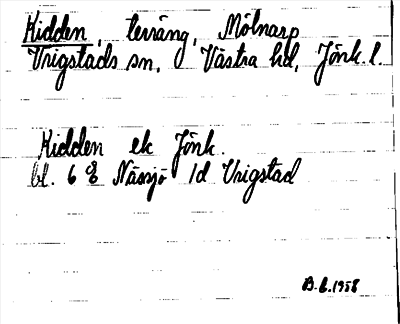 Kidden, terräng, Mölnarp
Vrigstads sn, Västra hd, Jönk. l.
Kidden ek Jönk.
bl. 6 Nässjö 1d Vrigstad
B-6.1958